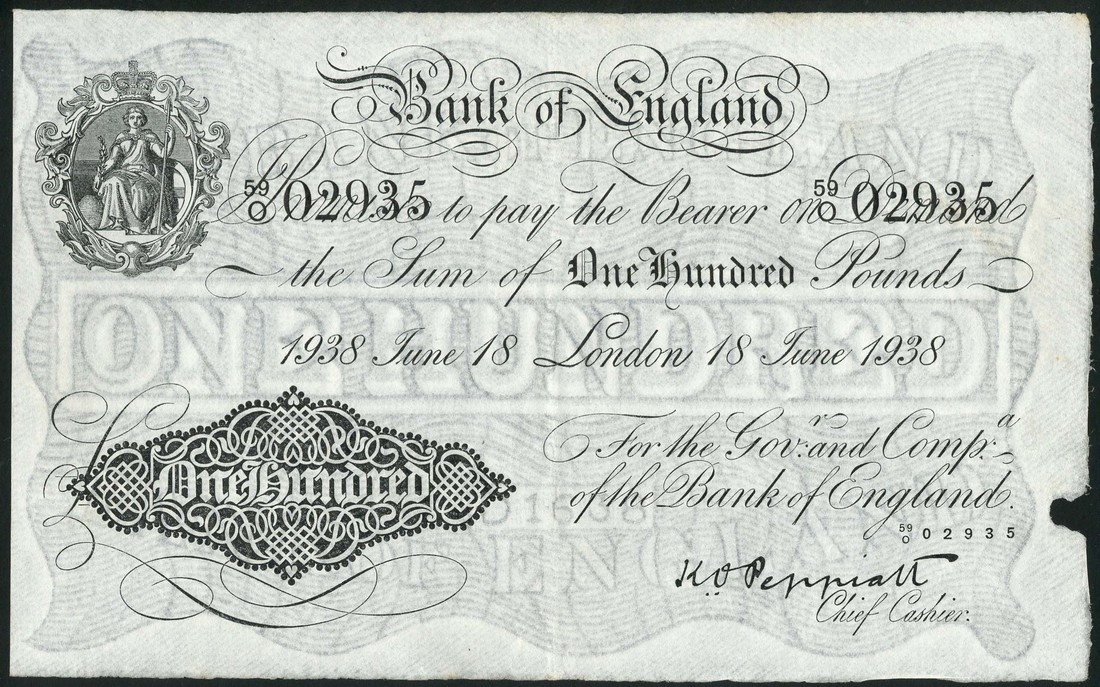 Bank of England
59/O 02935 to pay the Bearer on Demand 59/O 02935
the Sum of One Hundred Pounds
1938 June 18 London 18 June 1938
For the Gov.r and Comp.a
of the Bank of England.
59/O 02935
£ One Hundred
K.O. Peppiatt
Chief Cashier.